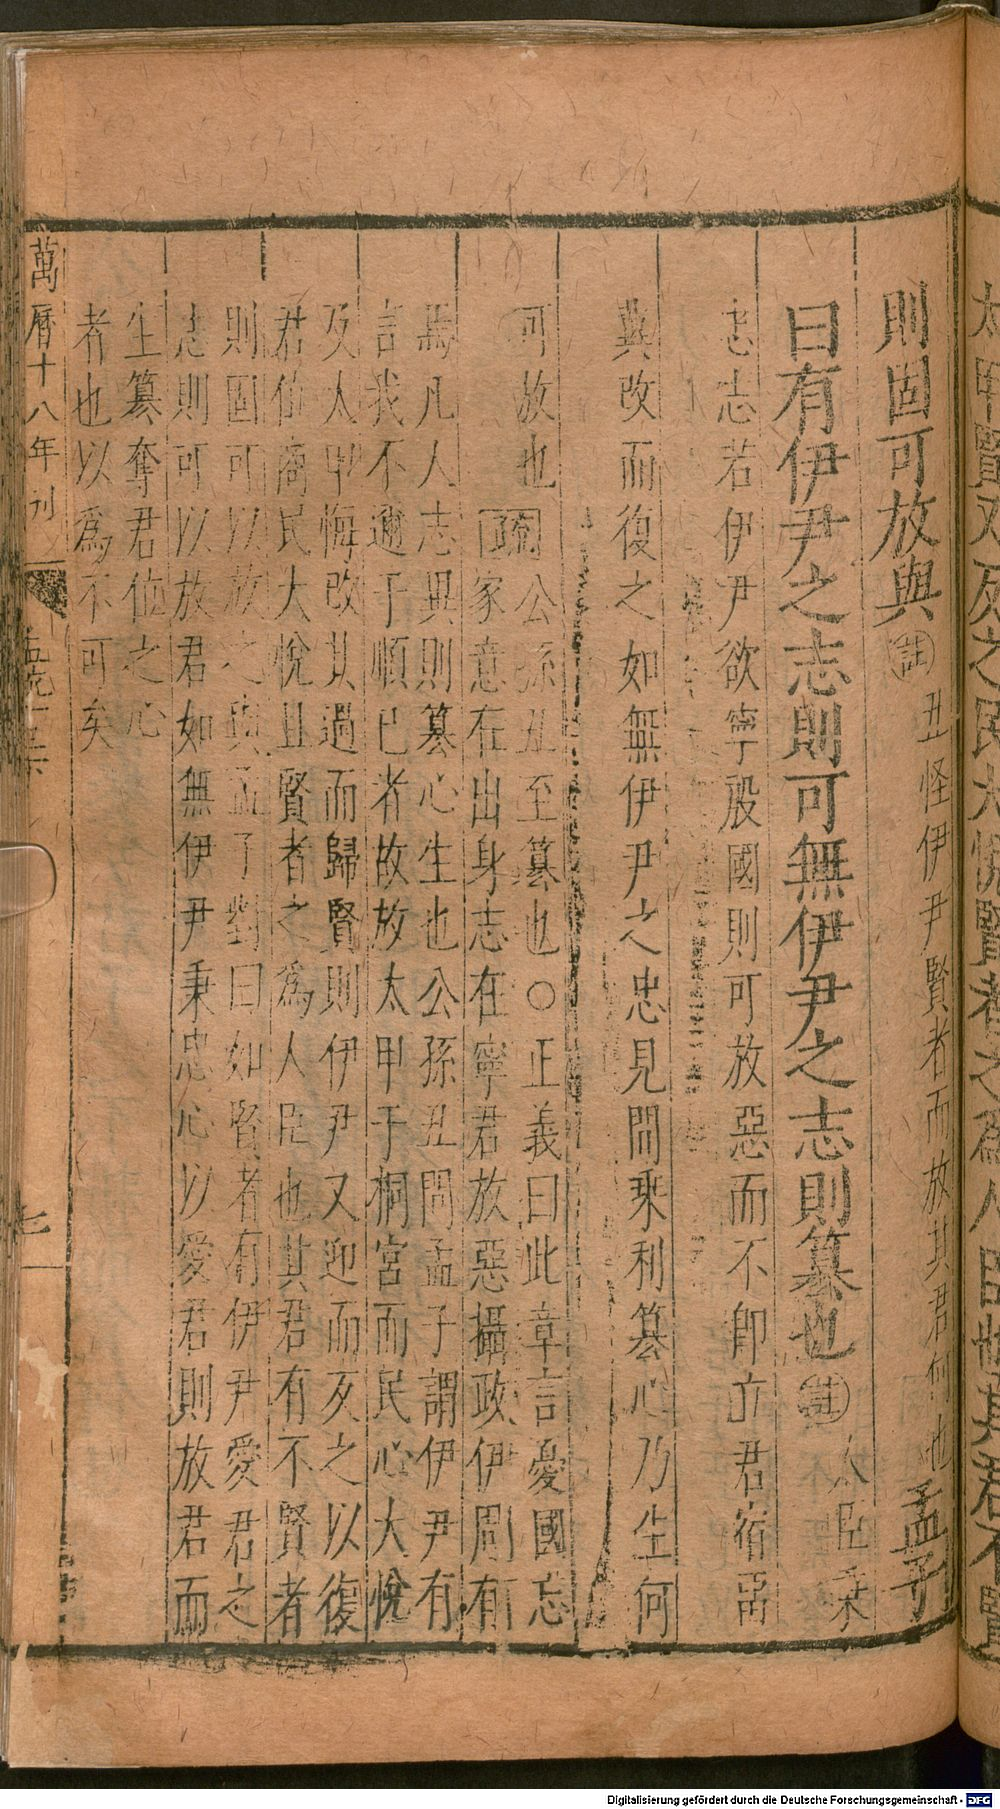 則固可放與㊟丑怪伊尹賢者而放其君何也孟子
曰有伊尹之志則可無伊尹之志則篡也㊟人臣秉
忠志若伊尹欲寧殷國則可放惡而不卽立君宿畱
兾攺而復之如無伊尹之忠見間乗利篡心乃生何
可放也
疏
公孫丑至篡也○正義曰此章言憂國忘
家意在出身志在寧君放惡攝政伊周有
焉凡人志異則篡心生也公孫丑問孟子謂伊尹有
言我不邇于順已者故放太甲于桐宮而民心大悅
及太甲悔攺其過而歸賢則伊尹又迎而反之以復
君位商民大悅且賢者之爲人臣也其君有不賢者
則固可以放之與孟子對曰如賢者有伊尹愛君之
志則可以放君如無伊尹秉忠心以愛君則放君而
生篡奪君位之心
者也以爲不可矣
萬曆十八年刊
七
太甲賢又反之民大悅賢者之爲人臣也其君不賢
Digitalisierung gefördert durch die Deutsche Forschungsgemeinschaft - DFG